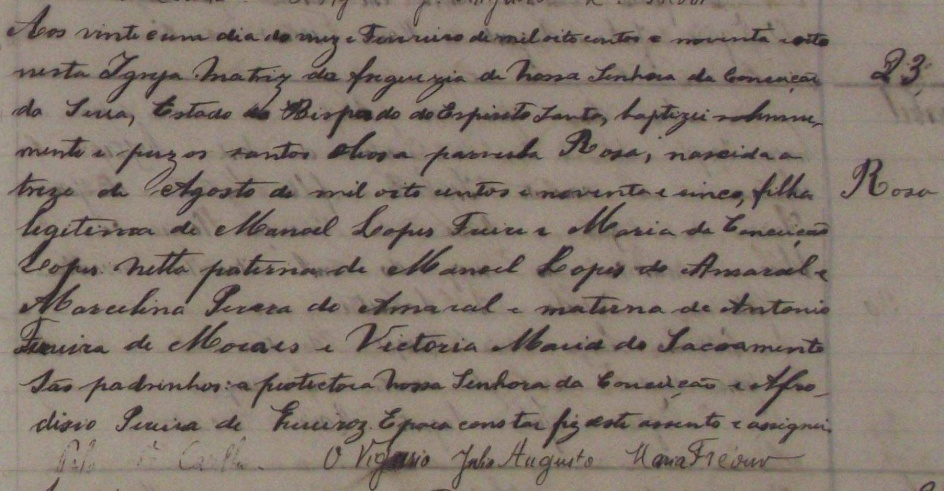 Aos vinte e um dia do mez e Fevereiro de mil oito centos e noventa e oito
nesta Igreja Matriz da freguezia de Nossa Senhora da Conceição
23
da Serra, Estado do Bispado do Espirito Santo, baptizei solemne-
mente e puz os santos oleos a parvula Rosa, nascida a
treze de Agosto de mil oito centos e noventa e cinco, filha
Rosa
legitima de Manoel Lopes Freire e Maria da Conceição
Lopes netta paterna de Manoel Lopes do Amaral e
Marcelina Pereira do Amaral e materna de Antonio
Ferreira de Moraes e Victoria Maria do Sacramento
São padrinhos: a protectora Nossa Senhora da Conceição e Afro-
disio Pereira de Queiroz. E para constar fiz este assento e assignei.
O Vigario Augusto